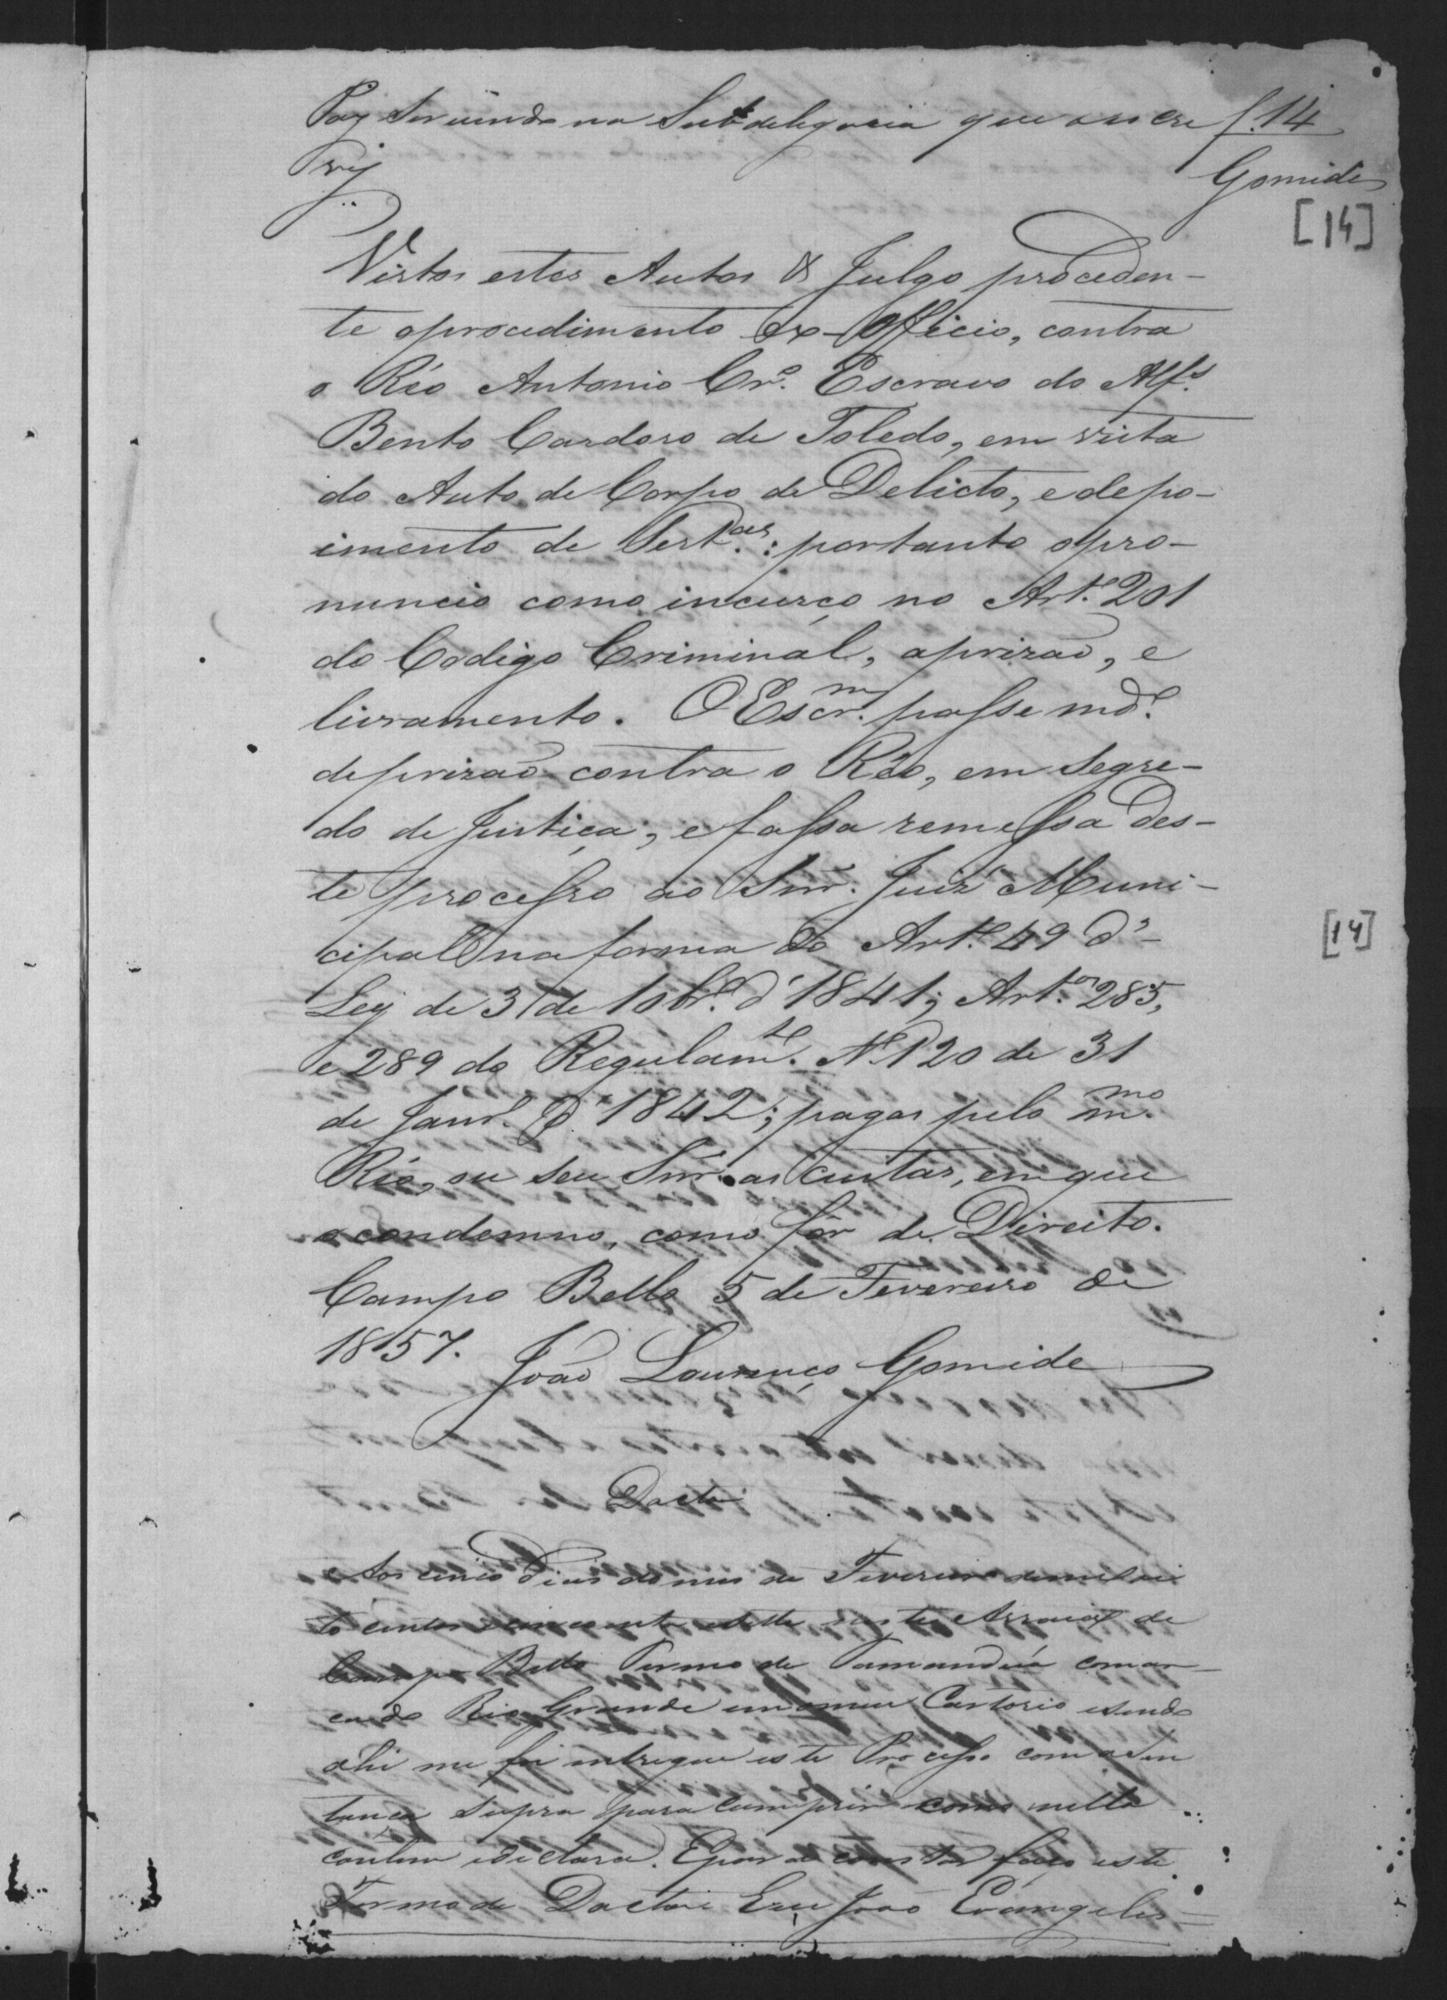 Paz Servindo na Subdelegacia que o escre f. 14
vy Gomide
[14]
Vistos estes Autos & Julgo proceden-
te oprocedimento ex-Officio, contra
o Réo Antonio Cr.º Escravo do Alf.s
Bento Cardoso de Toledo, em vista
do Auto de Corpo de Delicto, e depo-
imento de Test.as: portanto opro-
nuncio como incurço no Art.º 201
do Codigo Criminal, aprizaõ, e
livramento. O Escr.m passe md.º
deprizaõ contra o Réo, em Segre-
do de Justiça; e fassa remessa des-
te processo ao Snr. Juiz Muni-
cipal na forma do Art.º 49 d'
Ley de 3 de 10br.º d' 1841; Art.os 285,
e 289 do Regulam.to N. 120 de 31
de Janr.º d' 1842; pagas pelo m.mo
Réo, ou seu Snr. as custas, em que
o condemno, como fôr de Direito.
Campo Bello 5 de Fevereiro de
1857. João Lourenço Gomide
[14]
Dacta
Aos cinco dias do mes de Fevereiro demil oi
to centos e sincoenta esette neste Arraial de
Campo Bello Termo de Tamanduá comar-
cado Rio Grande em omeu Cartorio esendo
ahi me foi entregue este Processo com asen
tença Supra para cumprir como nella
contem edeclara. Epara constar faço este
Termo de Dacta. Eeu João Evangelis=